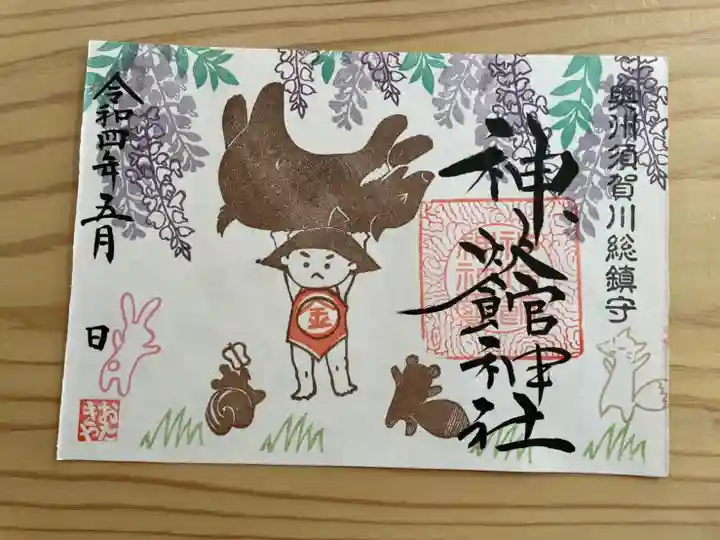 奥州須賀川総鎮守
神炊館神社
令和四年五月
日
金
おたきや